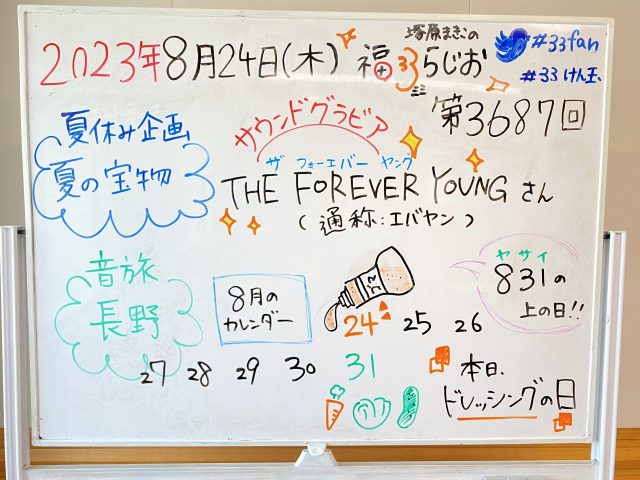 塚原まきこの
2023年8月24日(木) 福33らじお
#33fan
#33けん玉
第3687回
夏休み企画
夏の宝物
サウンドグラビア
ザ フォーエバー ヤング
THE FOREVER YOUNG さん
(通称:エバヤン)
音旅
長野
8月の
カレンダー
24 25 26
27 28 29 30 31
ヤサイ
831の
上の日!!
本日
ドレッシングの日